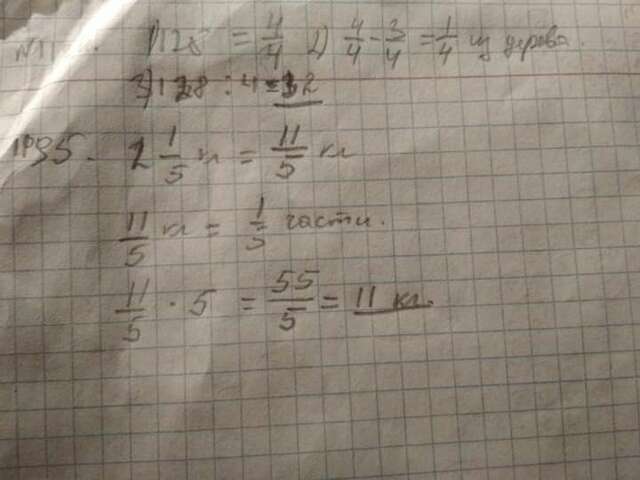 N11. 1) 128 = 4/4 2) 4/4 - 3/4 = 1/4 из дерева.
3) 128 : 4 = 32
№35. 2 1/5 кг = 11/5 кг
11/5 кг = 1/5 части.
11/5 · 5 = 55/5 = 11 кг.